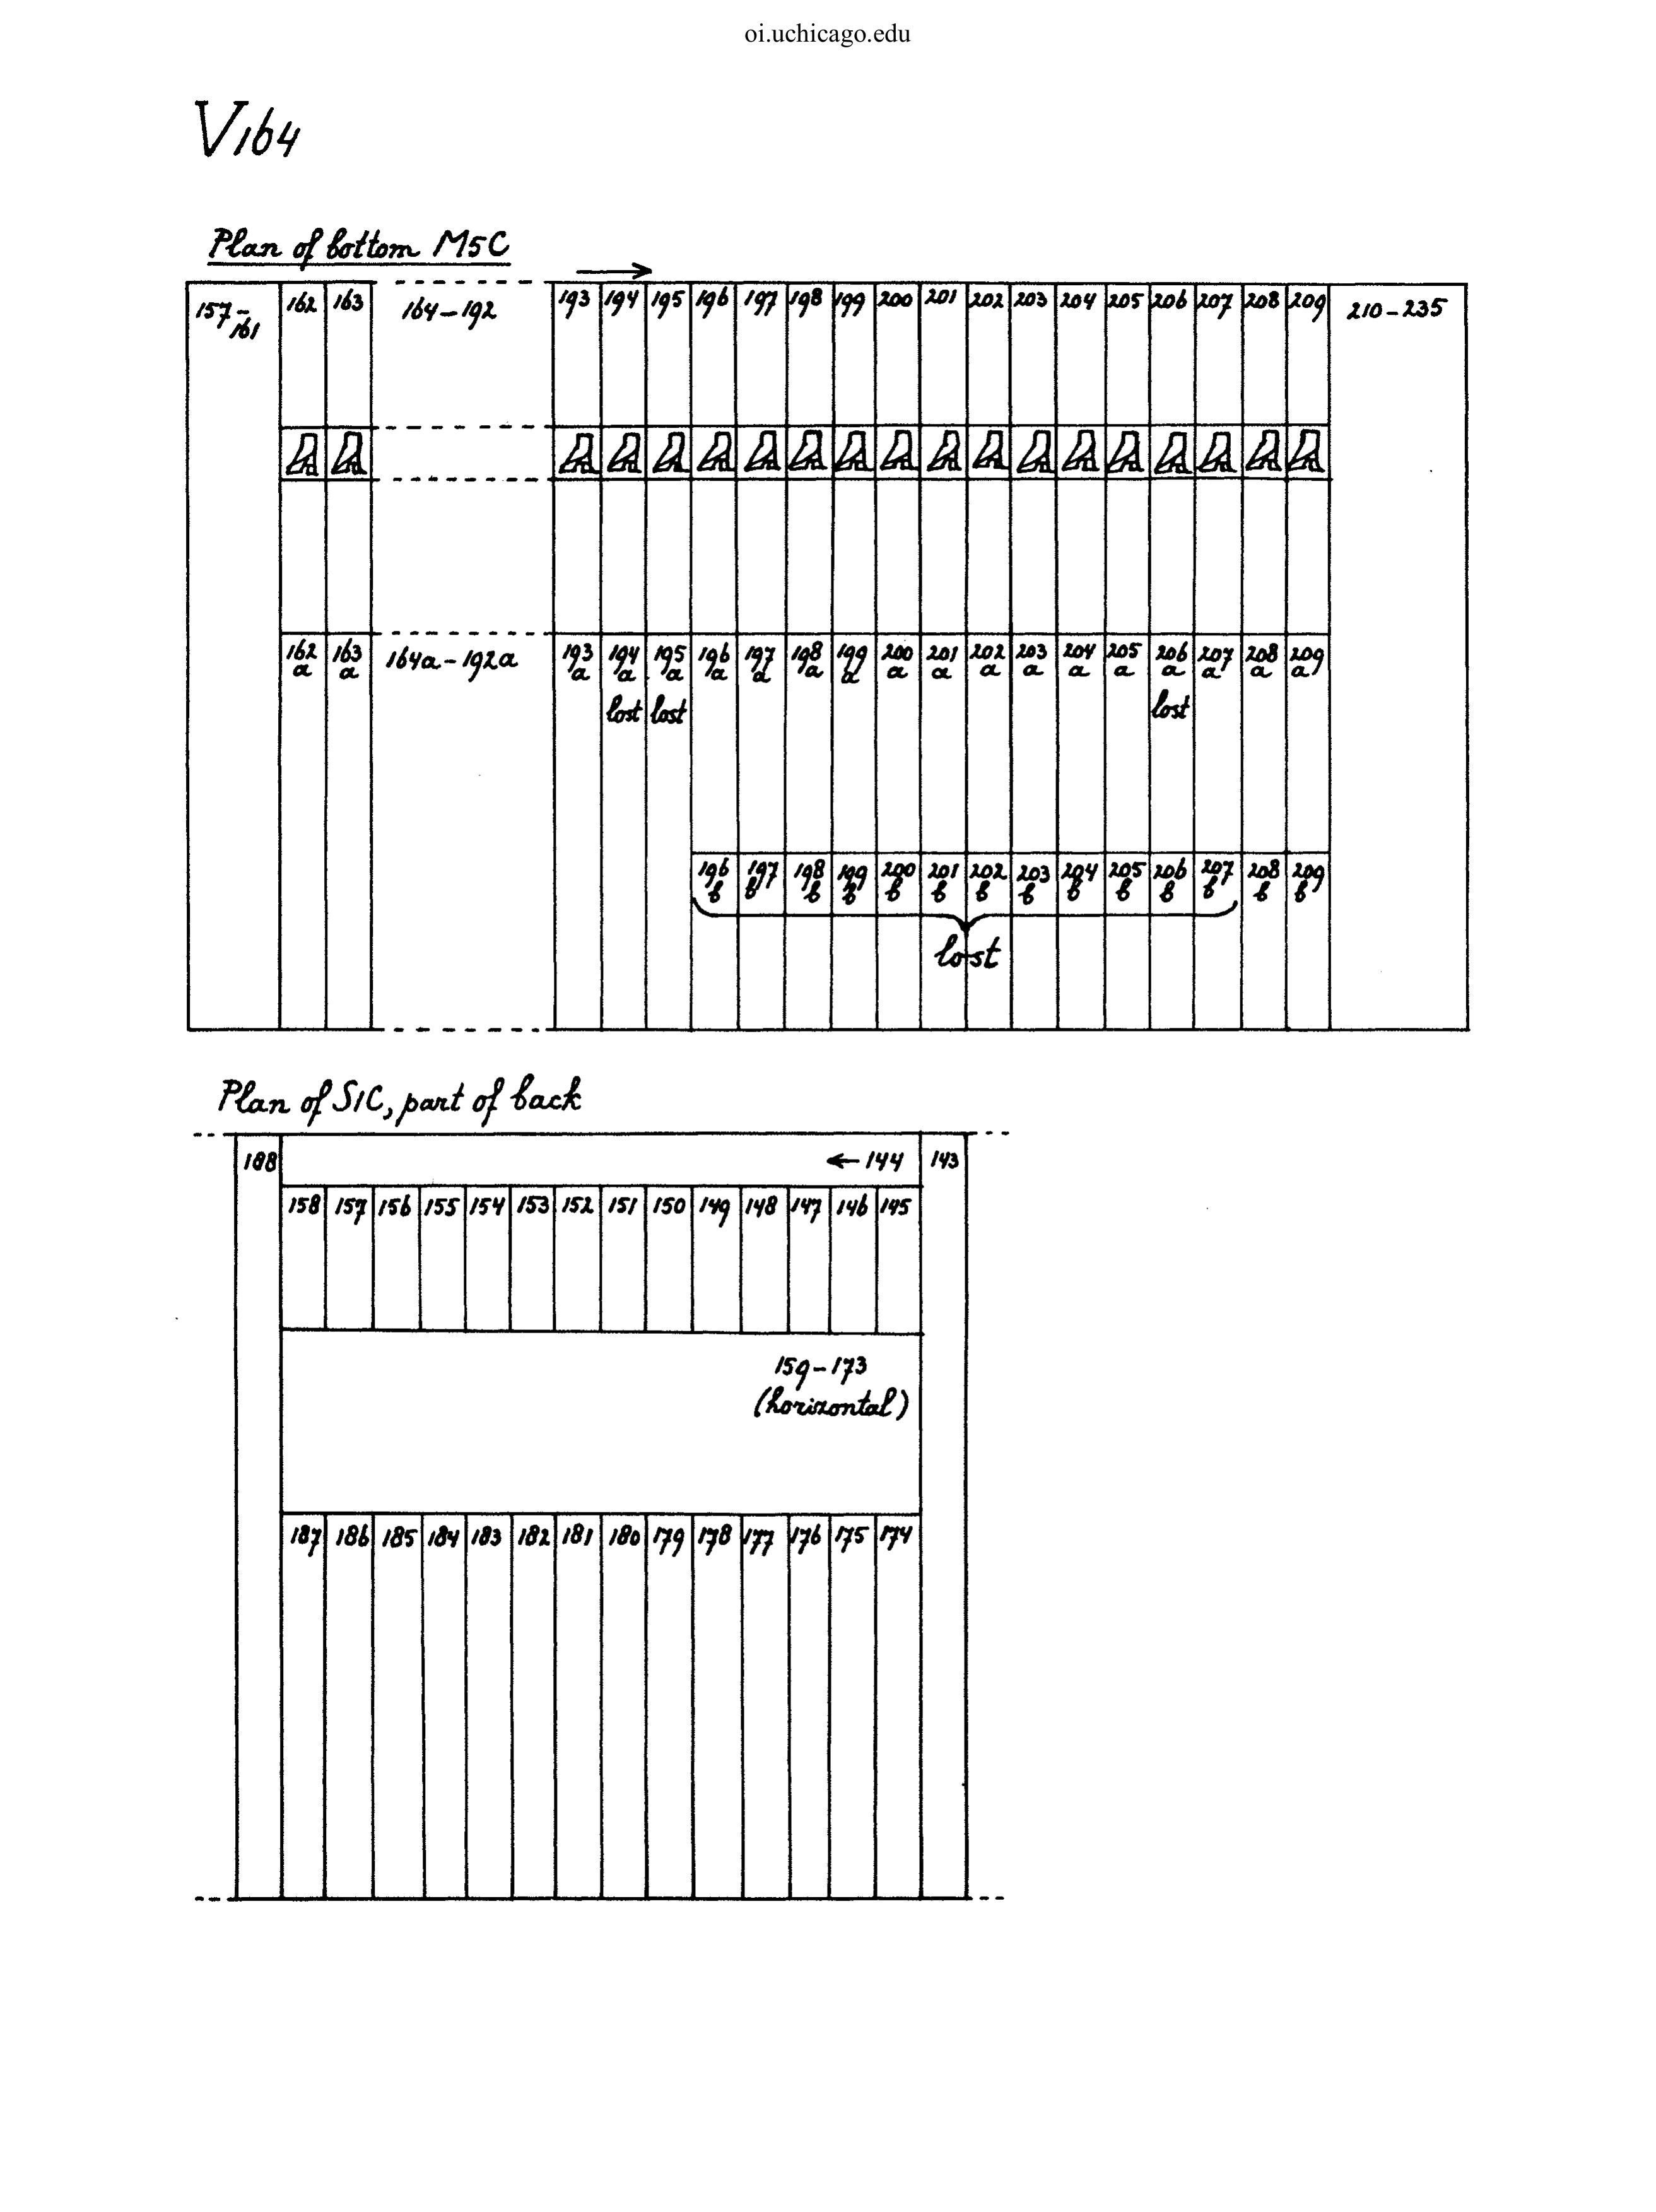 oi.uchicago.edu
V164
Plan of bottom M5C
→
157-161 162 163 164-192 193 194 195 196 197 198 199 200 201 202 203 204 205 206 207 208 209 210-235
162a 163a 164a-192a 193a 194a 195a 196a 197a 198a 199a 200a 201a 202a 203a 204a 205a 206a 207a 208a 209a
lost lost lost
196b 197b 198b 199b 200b 201b 202b 203b 204b 205b 206b 207b 208b 209b
lost
Plan of S1C, part of back
188 ←144 143
158 157 156 155 154 153 152 151 150 149 148 147 146 145
159-173
(horizontal)
187 186 185 184 183 182 181 180 179 178 177 176 175 174